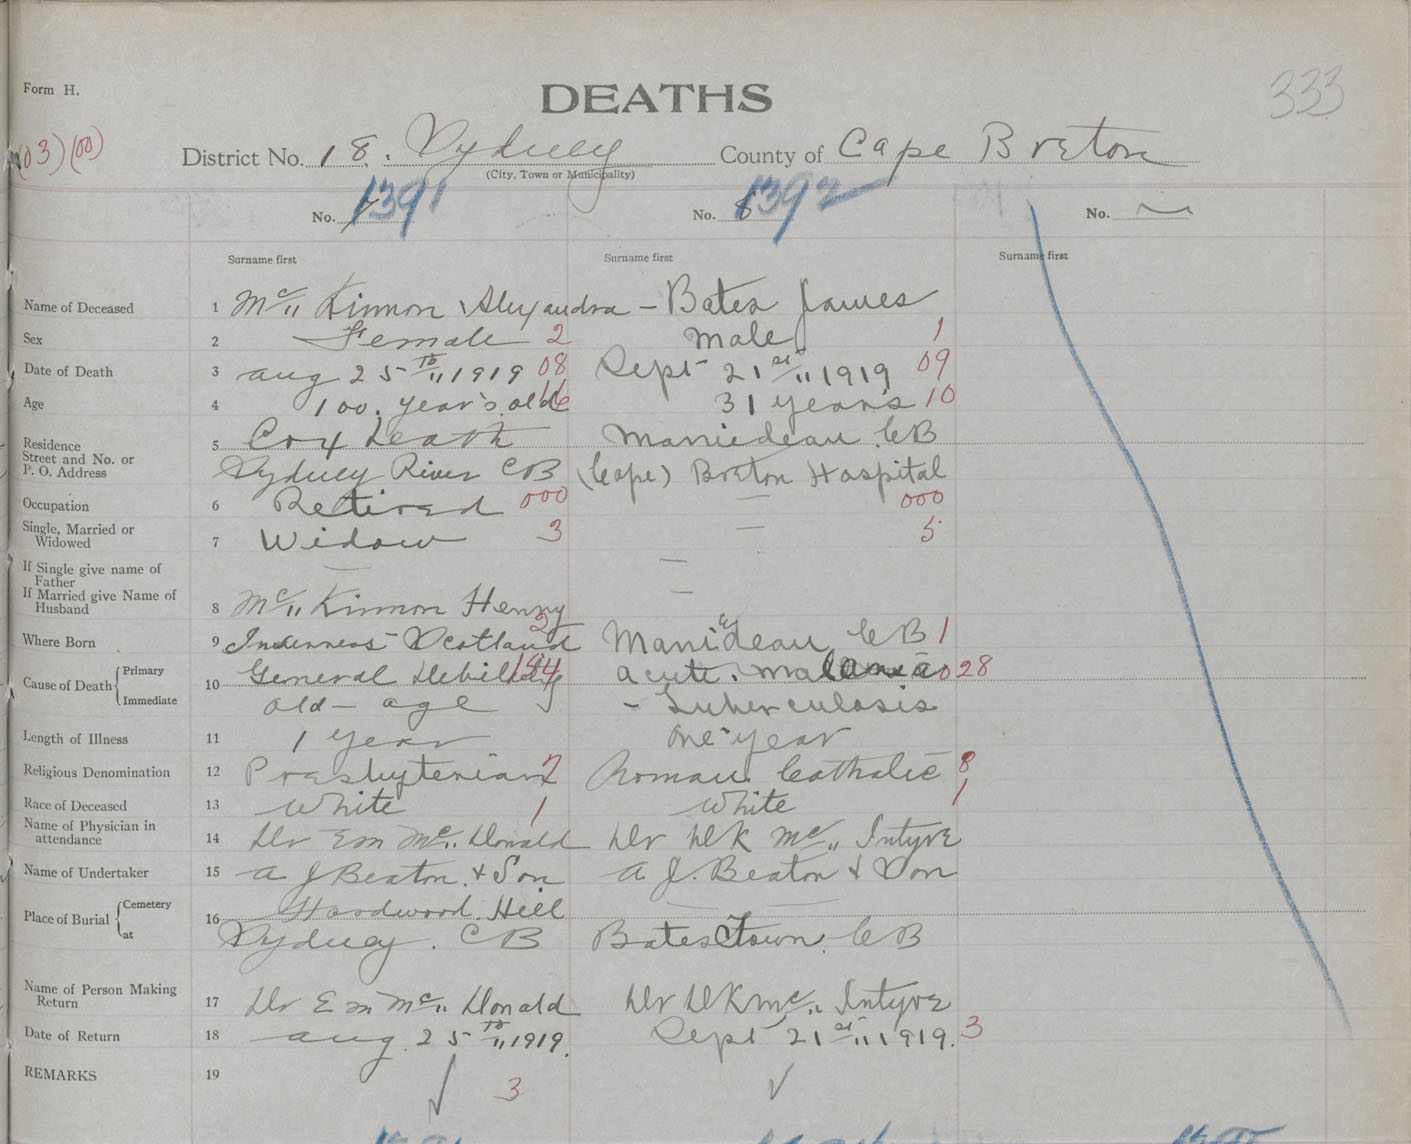 Form H.
DEATHS
333
(03)(00)
District No. 18. Sydney County of Cape Breton
(City, Town or Municipality)
No. 7 1391 No. 8 1392 No.
Surname first Surname first Surname first
Name of Deceased 1 Mc Kinnon Alexandra - Bates James
Sex 2 Female 2 Male 1
Date of Death 3 Aug 25th 1919 08 Sept 21st 1919 09
Age 4 100. year's. old 16 31 years 10
Residence 5 Cox heath CB
Street and No. or
P. O. Address Sydney River CB (Cape) Breton Hospital
Occupation 6 Retired 000 — 000
Single, Married or
Widowed 7 Widow 3 — 5
If Single give name of
Father — —
If Married give Name of
Husband 8 Mc Kinnon Henry —
Where Born 9 Inverness Scotland 2 CB 1
Cause of Death Primary 10 General Debility 154 acute. 028
Immediate old - age - Tuberculosis
Length of Illness 11 1 year one year
Religious Denomination 12 Presbyterian 7 Roman Catholic 8
Race of Deceased 13 White 1 White 1
Name of Physician in
attendance 14 Dr E M Mc Donald Dr D K Mc Intyre
Name of Undertaker 15 A J Beaton. & Son A. J. Beaton & Son
Place of Burial Cemetery 16 Hardwood. Hill — —
at Sydney. CB Batestown. CB
Name of Person Making
Return 17 Dr E M Mc Donald Dr D K Mc Intyre
Date of Return 18 Aug. 25th 1919. Sept 21st 1919. 3
REMARKS 19 ✓ 3 ✓